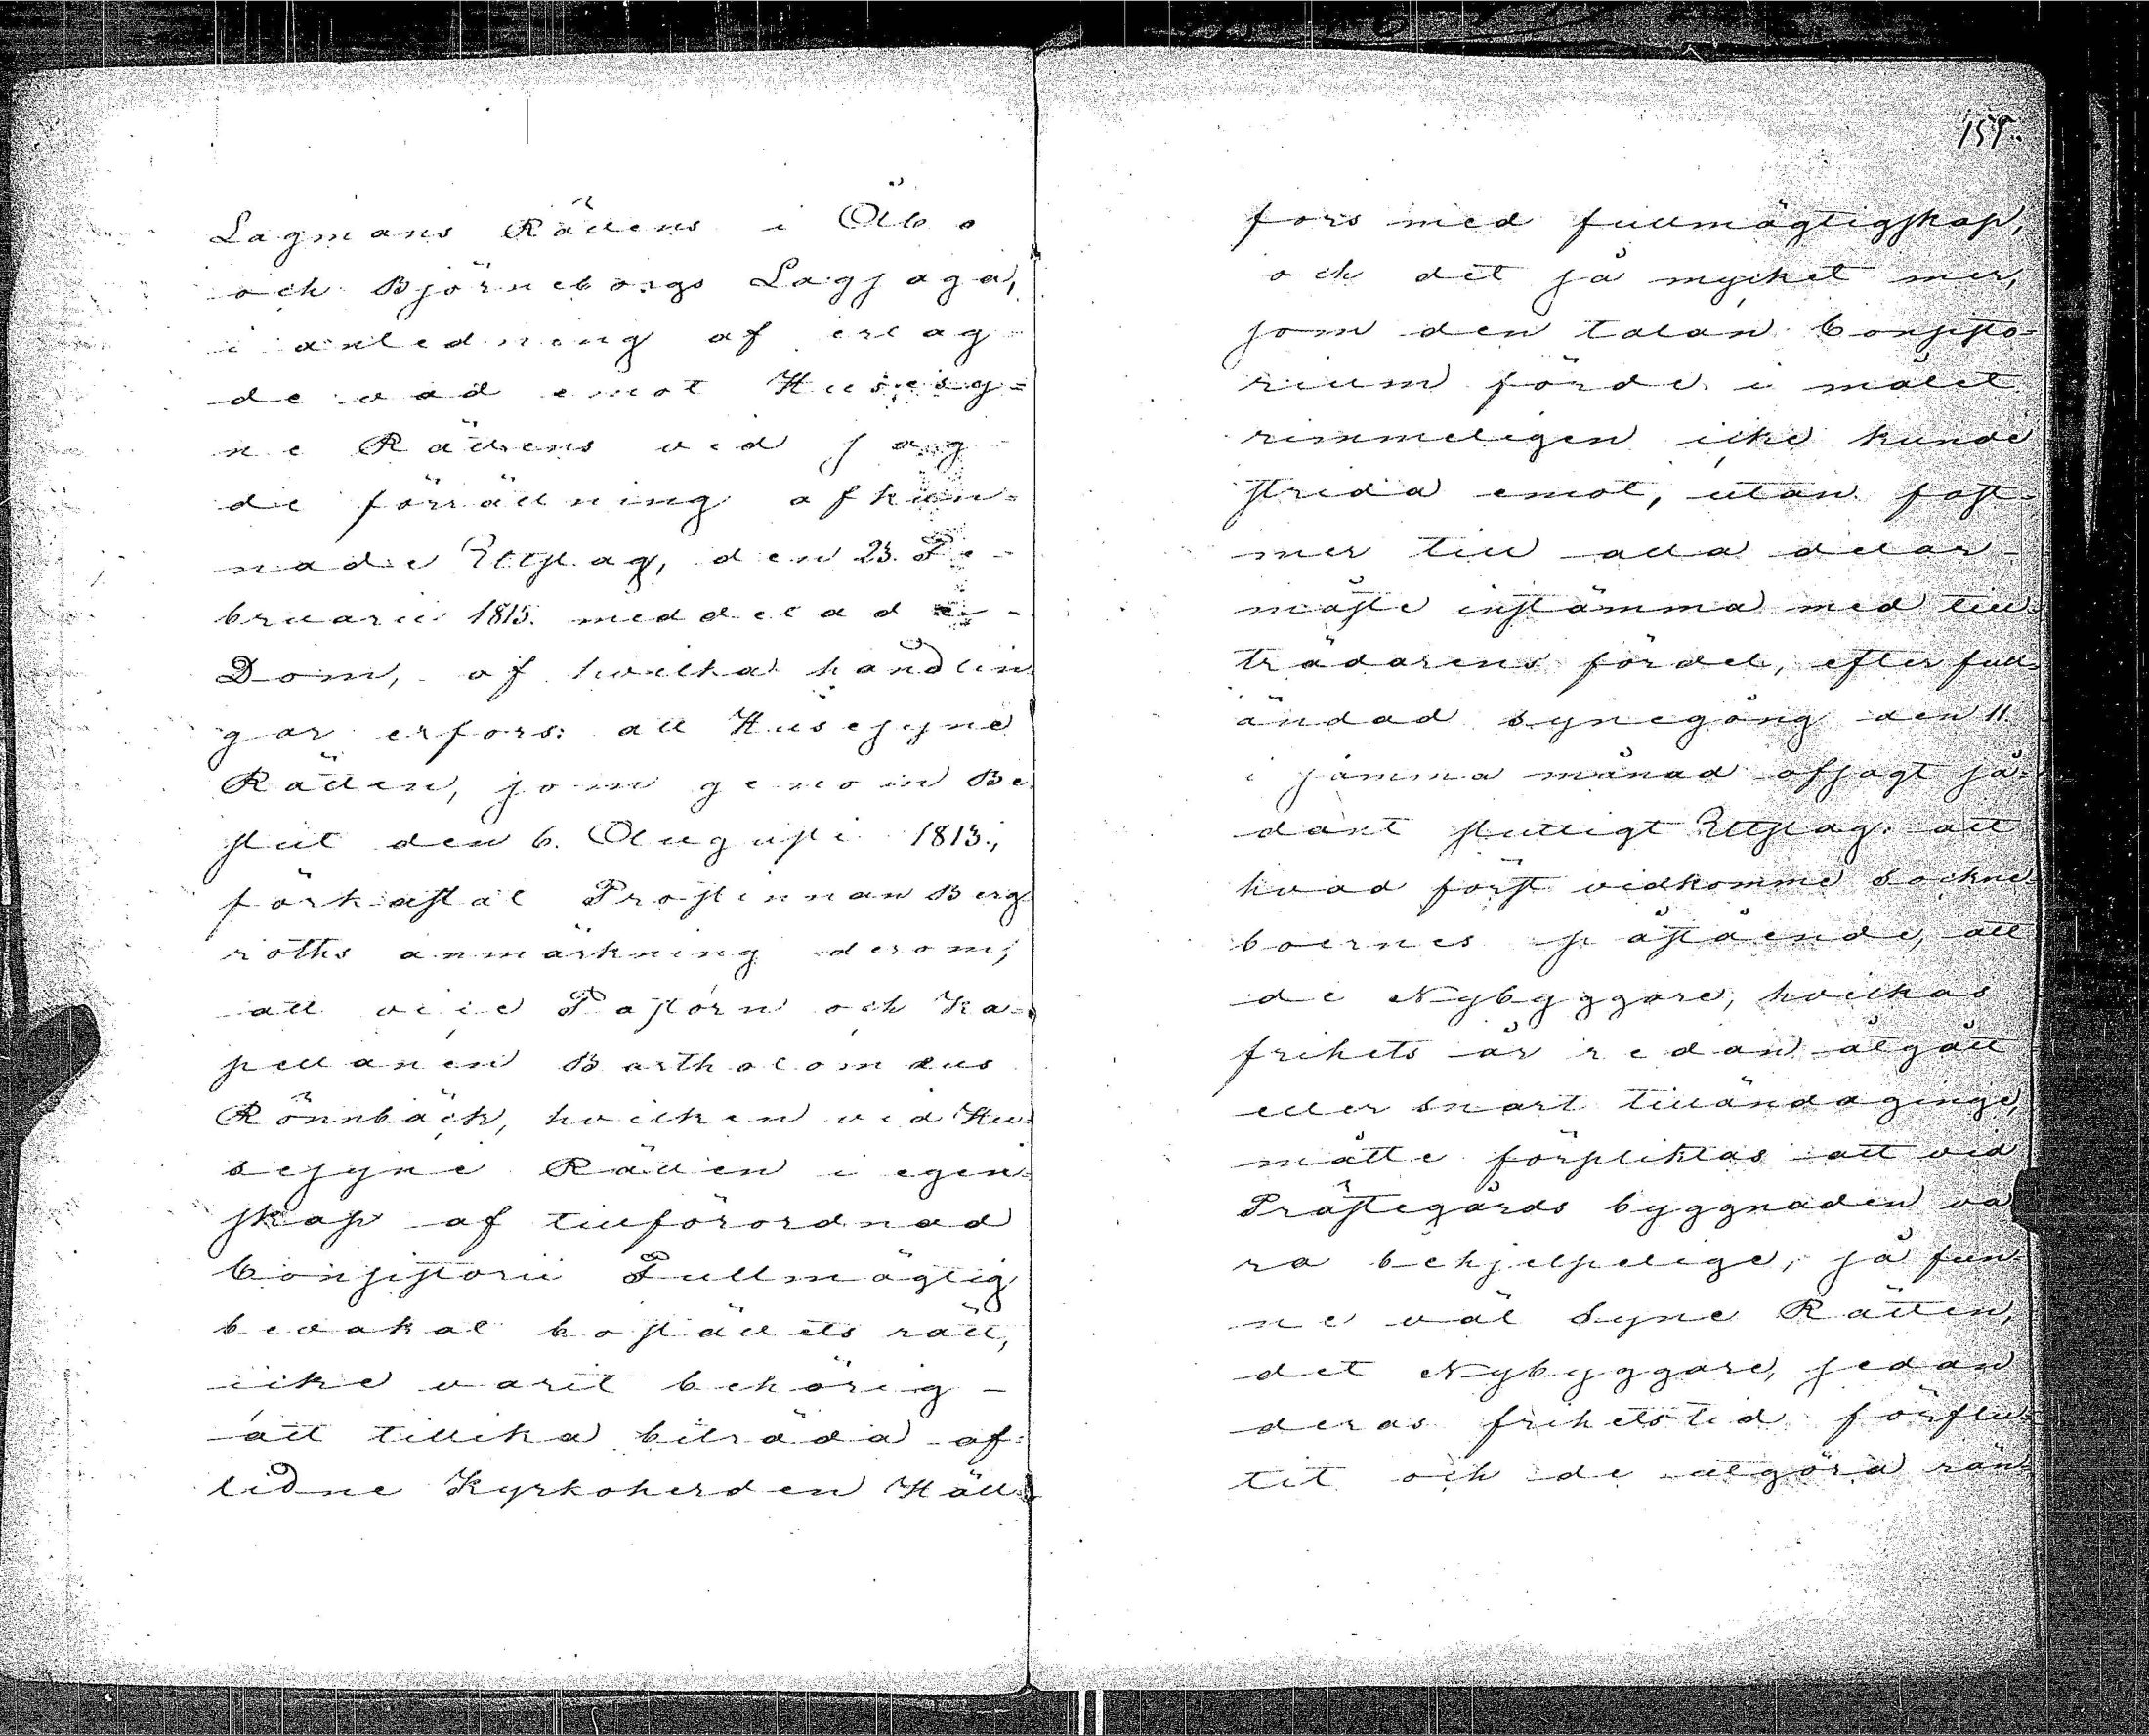 Lagmans Rättens i Åbo
och Björneborgs Lagsaga,
i anledning af erlag
de vad emot Husesy=
ne Rättens vid sag
de förrättning afkun=
nade Utslag, den 23. Fe-
bruarii 1815. meddelade
Dom, af hvilka handlin
gar erfors: att Husesyne
Rätten, som genom Be
slut den 6. Augusti 1813.,
förkastat Prostinnan Berg
roths anmärkning derom,
att vice Pastorn och Ka-
pellanen Bartholomæus
Rönnbäck, hvilken vid Hu=
sesyne Rätten i egen=
skap af tillförordnad
Consistorii Fullmägtig
bevakat boställets rätt,
icke varit behörig
att tillika biträda af=
lidne Kyrkoherden Häll
159.
fors med fullmägtigskap,
och det så mycket mer,
som den talan Consisto=
rium förde i målet
rimmeligen icke kunde
strida emot, utan fast=
mer till alla delar
måste instämma med till=
trädarens fördel, efter full=
ändad synegång den 11.
i samma månad afsagt så=
dant slutligt Utslag: att
hvad först vidkomme Sockne
boernes påstående, att
de Nybyggare, hvilkas
frihets år redan åtgått
eller snart tilländaginge,
måtte förpliktas att vid
Prästegårds byggnaden va
ra behjelpelige, så fun
ne väl Syne Rätten,
det Nybyggare, sedan
deras frihetstid förflu=
tit och de utgöra rän